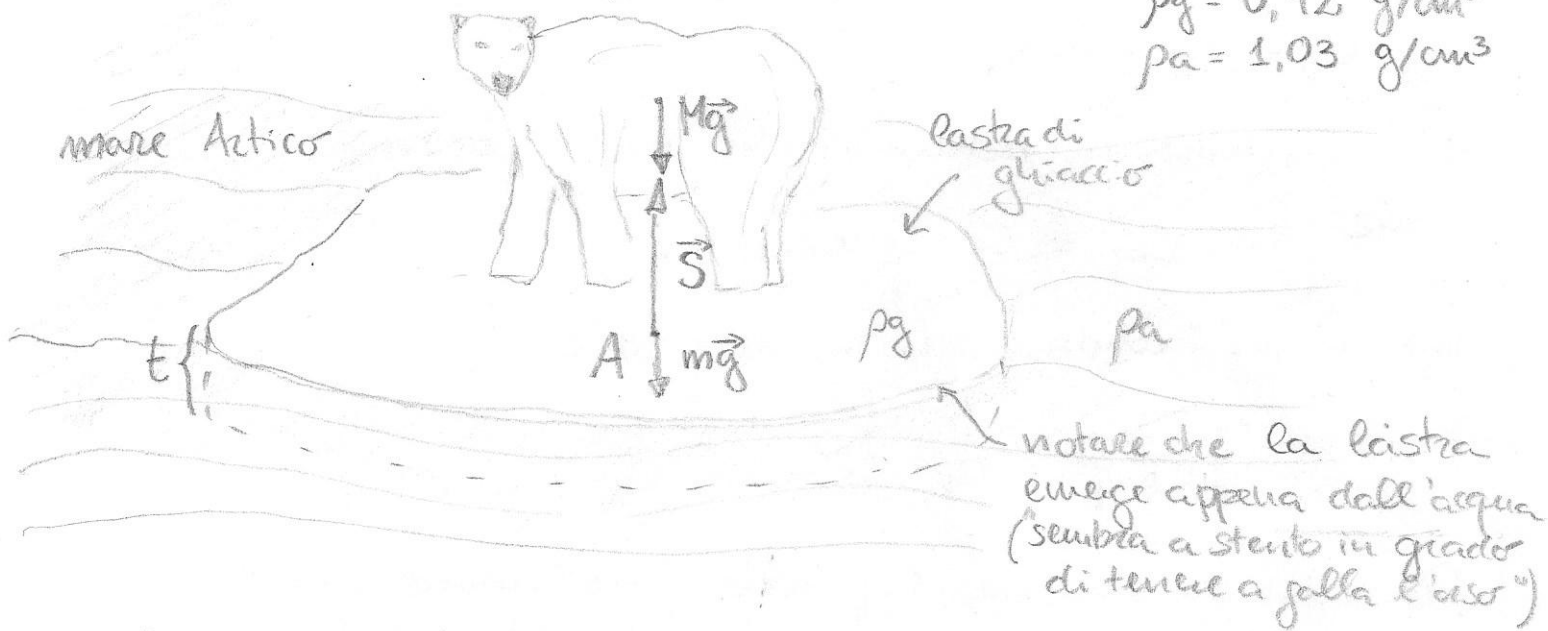 ρg = 0,92 g/cm³
ρa = 1,03 g/cm³
mare Artico
Mg
lastra di
ghiaccio
S
t
A
mg
ρg
ρa
notare che la lastra
emerge appena dall'acqua
("sembra a stento in grado
di tenere a galla l'orso")